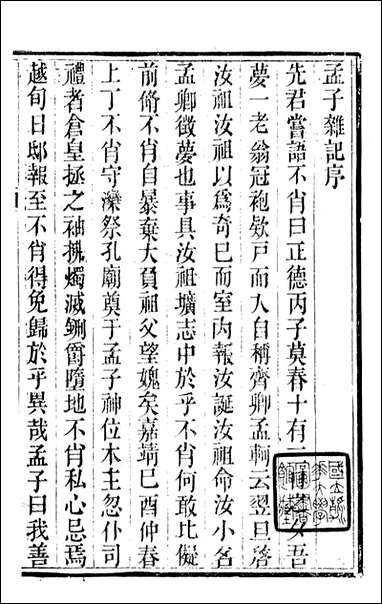 孟子雜記序
先君嘗語不肖曰正德丙子莫春十有二
夢一老翁冠袍欵戸而入自稱齊卿孟軻云翌旦啓
汝祖汝祖以爲奇巳而室内報汝誕汝祖命汝小名
孟卿徵夢也事具汝祖壙志中於乎不肖何敢比儗
前脩不肖自暴棄大負祖父望媿矣嘉靖巳酉仲春
上丁不肖守灤祭孔廟奠于孟子神位木主忽仆司
禮者倉皇拯之袖拂燭滅鉶爵墮地不肖私心忌焉
越旬日邸報至不肖得免歸於乎異哉孟子曰我善
國立